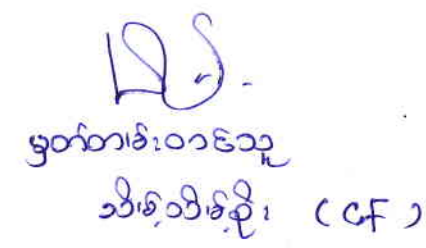 မှတ်တမ်းတင်သူ
သိမ့်သိမ့်စိုး (CF)